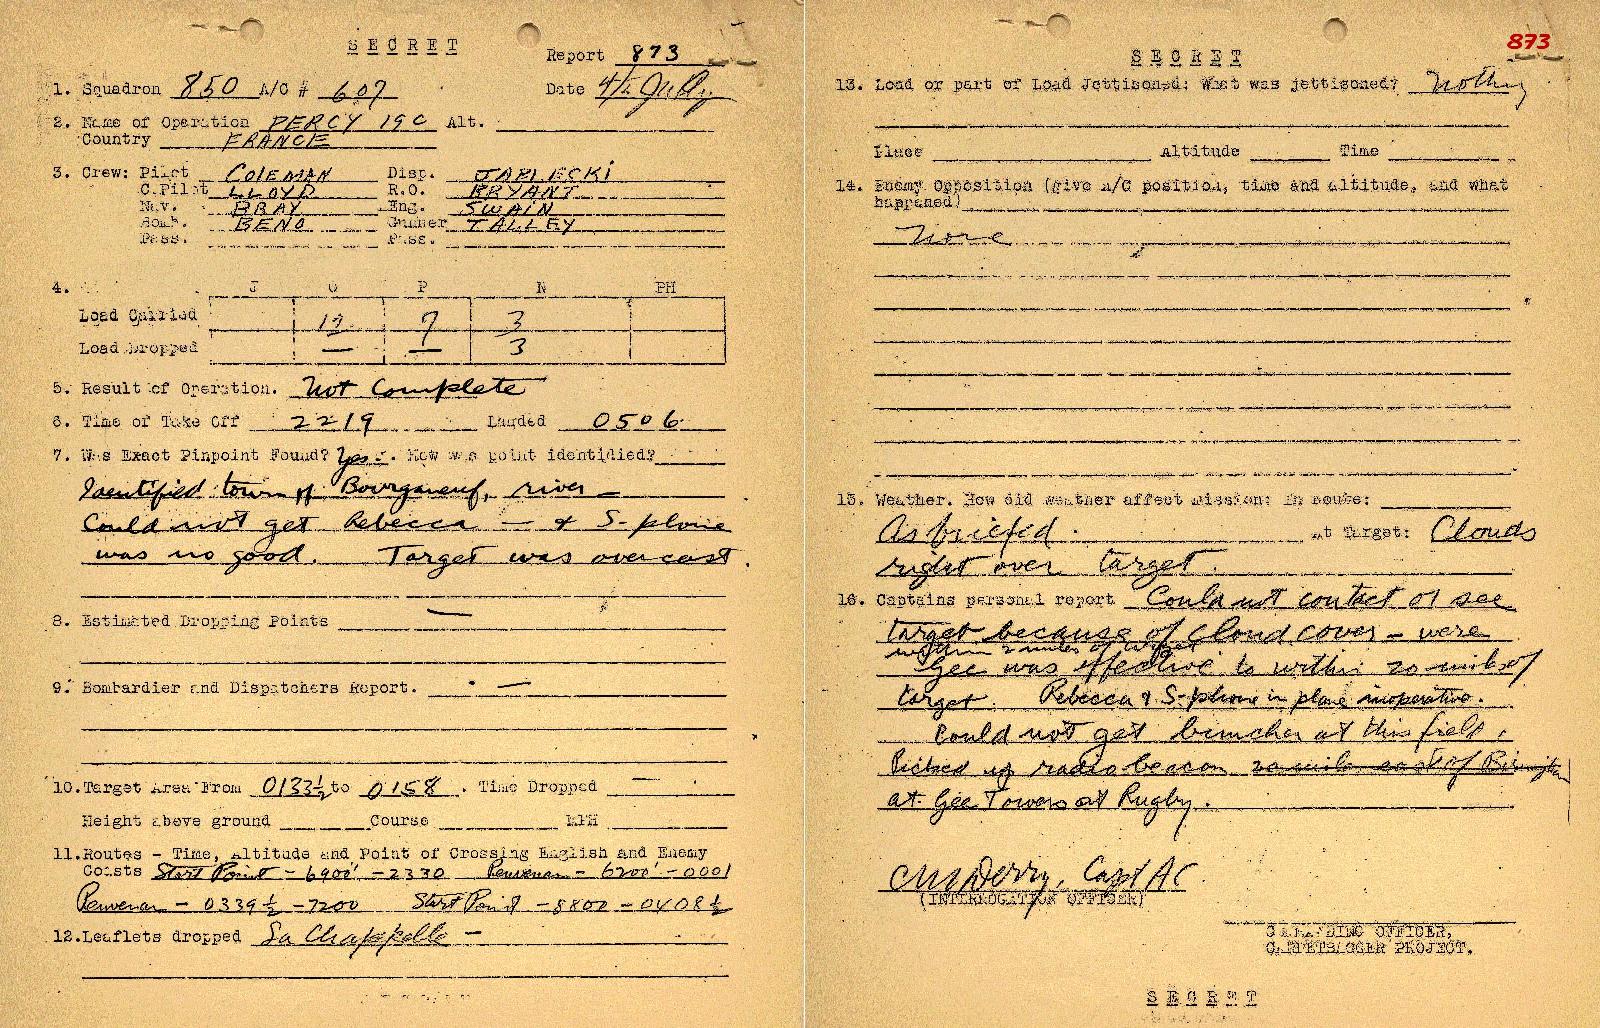 SECRET
Report 873
1. Squadron 850 A/C # 607 Date 4/5 July
2. Name of Operation PERCY 19C Alt.
Country FRANCE
3. Crew: Pilot COLEMAN Disp. JABLECKI
C.Pilot LLOYD R.O. BRYANT
Nav. BRAY Eng. SWAIN
Bomb. BENO Gunner TALLEY
Pass. Pass.
4. J C P N PH
Load Carried 12 7 3
Load Dropped — — 3
5. Result of Operation. Not Complete
6. Time of Take Off 2219 Landed 0506
7. Was Exact Pinpoint Found? Yes. How was point identidied?
Identified town of Bourganeuf, river —
Could not get Rebecca — & S-phone
was no good. Target was overcast.
8. Estimated Dropping Points —
9. Bombardier and Dispatchers Report. —
10. Target Area From 0133½ to 0158. Time Dropped —
Height above ground Course MPH
11. Routes - Time, Altitude and Point of Crossing English and Enemy
Coasts Start Point - 6900' - 2330 Penvenan - 6200' - 0001
Penvenan - 0339½ - 7200 Start Point - 8800 - 0408½
12. Leaflets dropped La Chappelle —
873
SECRET
13. Load or part of Load Jettisoned: What was jettisoned? Nothing
Place Altitude Time
14. Enemy Opposition (give A/C position, time and altitude, and what
happened)
None
15. Weather. How did weather affect mission: En Route:
As briefed. At Target: Clouds
right over target.
16. Captains personal report Could not contact or see
target because of cloud cover - were
within 2 miles of target
Gee was effective to within 20 miles of
target. Rebecca & S-phone in plane inoperative.
Could not get buncher at this field.
Picked up radio beacon 20 miles east of Birmingham
at Gee Towers at Rugby.
Capt AC
(INTERROGATION OFFICER)
COMMANDING OFFICER,
CARPETBAGGER PROJECT.
SECRET